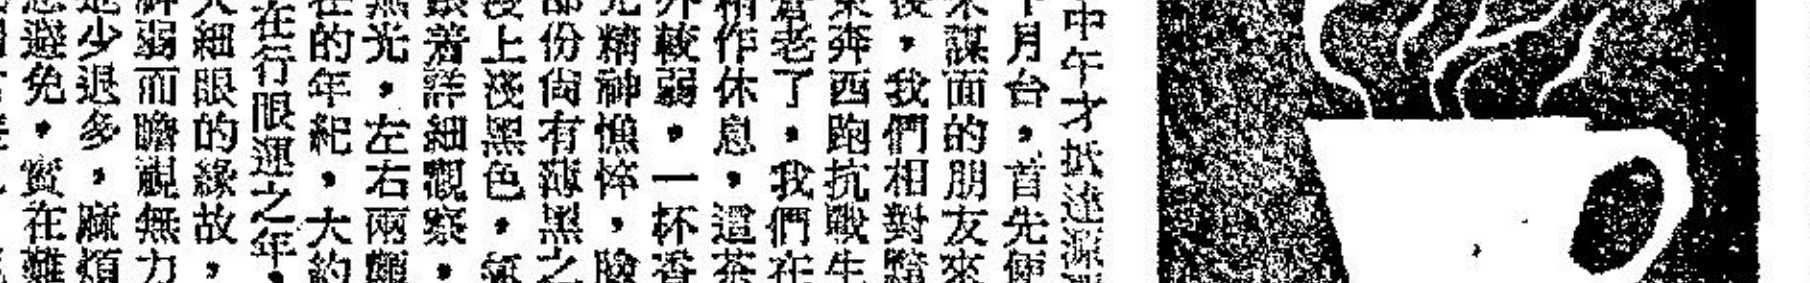 中午才抵達
下月台，首先便
未謀面的朋友來
後，我們相對
東奔西跑抗戰生
蒼老了，我們在
稍作休息，這茶
外較弱，一杯香
光精神憔悴，臉
部份尚有薄黑之
淺上淺黑色，氣
跟着詳細觀察，
黑光，左右兩顴
在的年紀，大約
在行眼運之年，
大細眼的緣故，
神弱而瞻視無力
進少退多，麻煩
避免，實在難